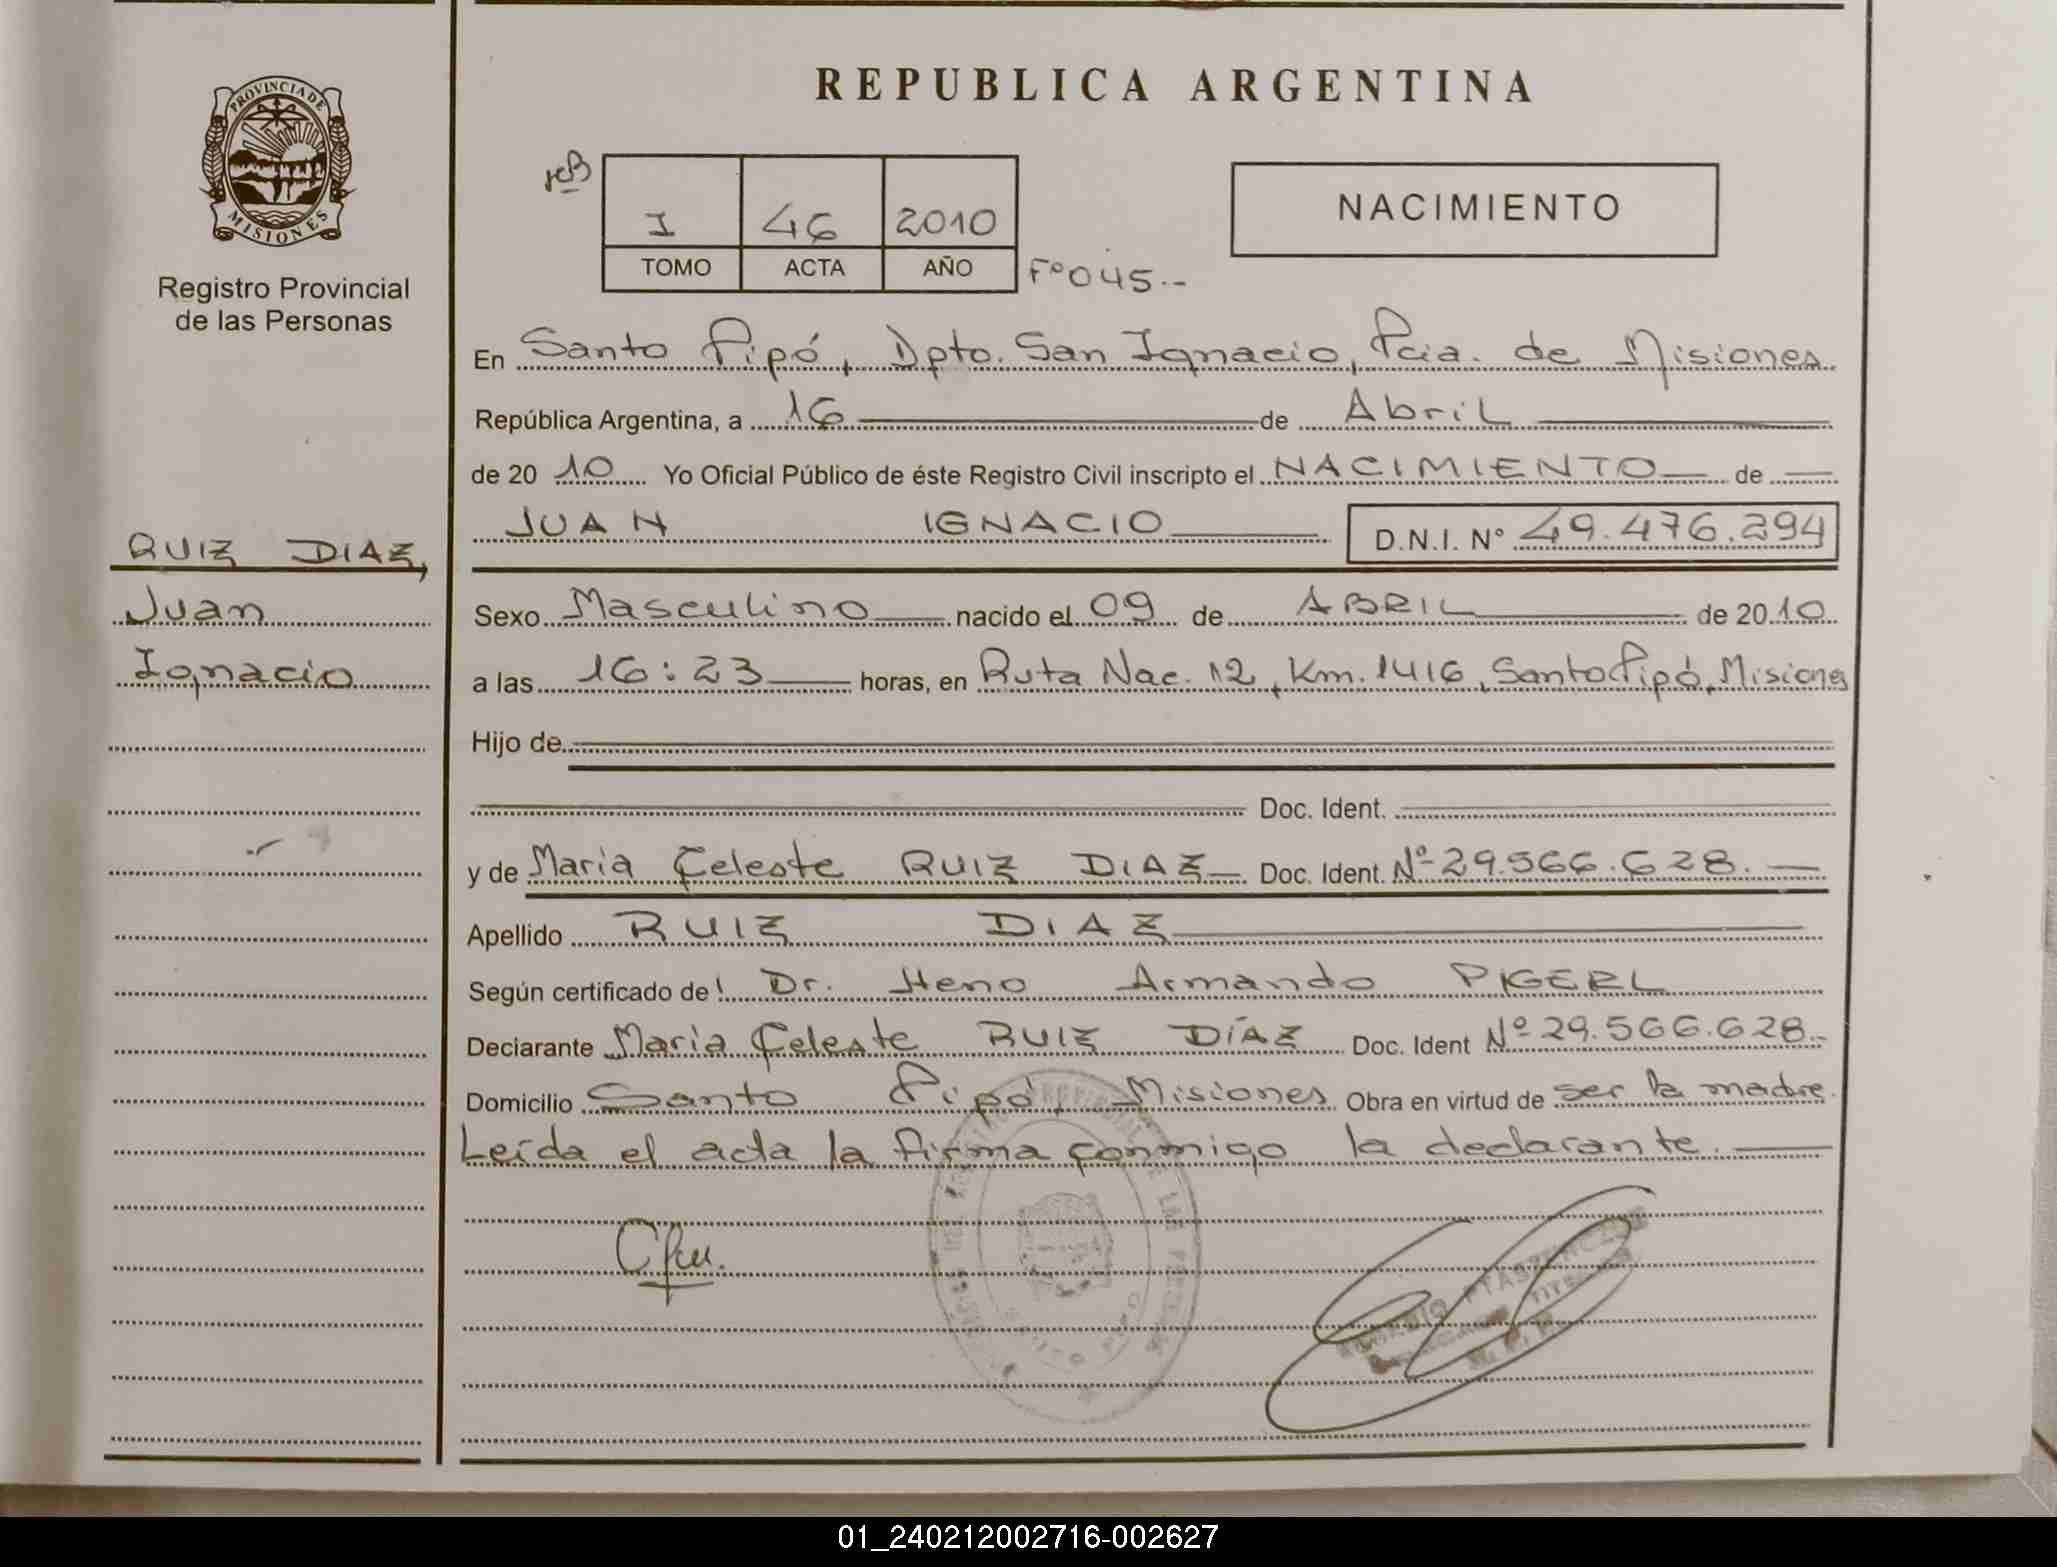 REPUBLICA ARGENTINA
PROVINCIA DE
MISIONES
Registro Provincial
de las Personas
I 46 2010
TOMO ACTA AÑO
Fº 045.-
NACIMIENTO
En Santo Pipó, Dpto. San Ignacio, Pcia. de Misiones
República Argentina, a 16 de Abril
de 2010 Yo Oficial Público de éste Registro Civil inscripto el NACIMIENTO de
JUAN IGNACIO D.N.I. Nº 49.476.294
RUIZ DIAZ,
Juan
Ignacio
Sexo Masculino nacido el 09 de ABRIL de 2010
a las 16:23 horas, en Ruta Nac. 12, Km. 1416, Santo Pipó, Misiones
Hijo de
Doc. Ident.
y de Maria Celeste RUIZ DIAZ Doc. Ident. Nº 29.566.628.
Apellido RUIZ DIAZ
Según certificado de Dr. Heno Armando PIGERL
Declarante Maria Celeste RUIZ DÍAZ Doc. Ident Nº 29.566.628.-
Domicilio Santo Pipó, Misiones Obra en virtud de ser la madre.
Leída el acta la firma conmigo la declarante.
01_240212002716-002627